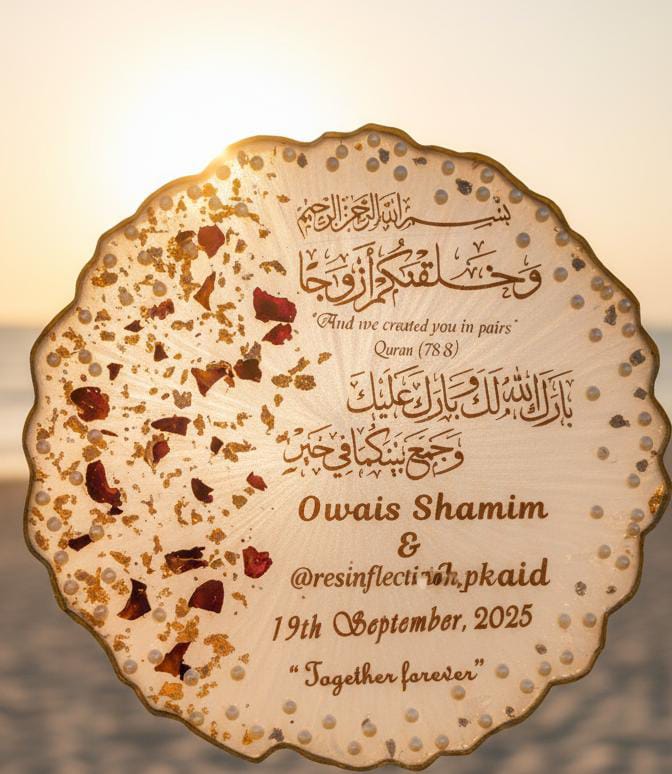 بسم الله الرحمن الرحيم
وَخَلَقْنَٰكُمْ أَزْوَٰجًا
"And we created you in pairs"
Quran (78:8)
بَارَكَ اللهُ لَكَ وَبَارَكَ عَلَيْكَ
وَجَمَعَ بَيْنَكُمَا فِي خَيْرٍ
Owais Shamim
&
19th September, 2025
“Together forever”